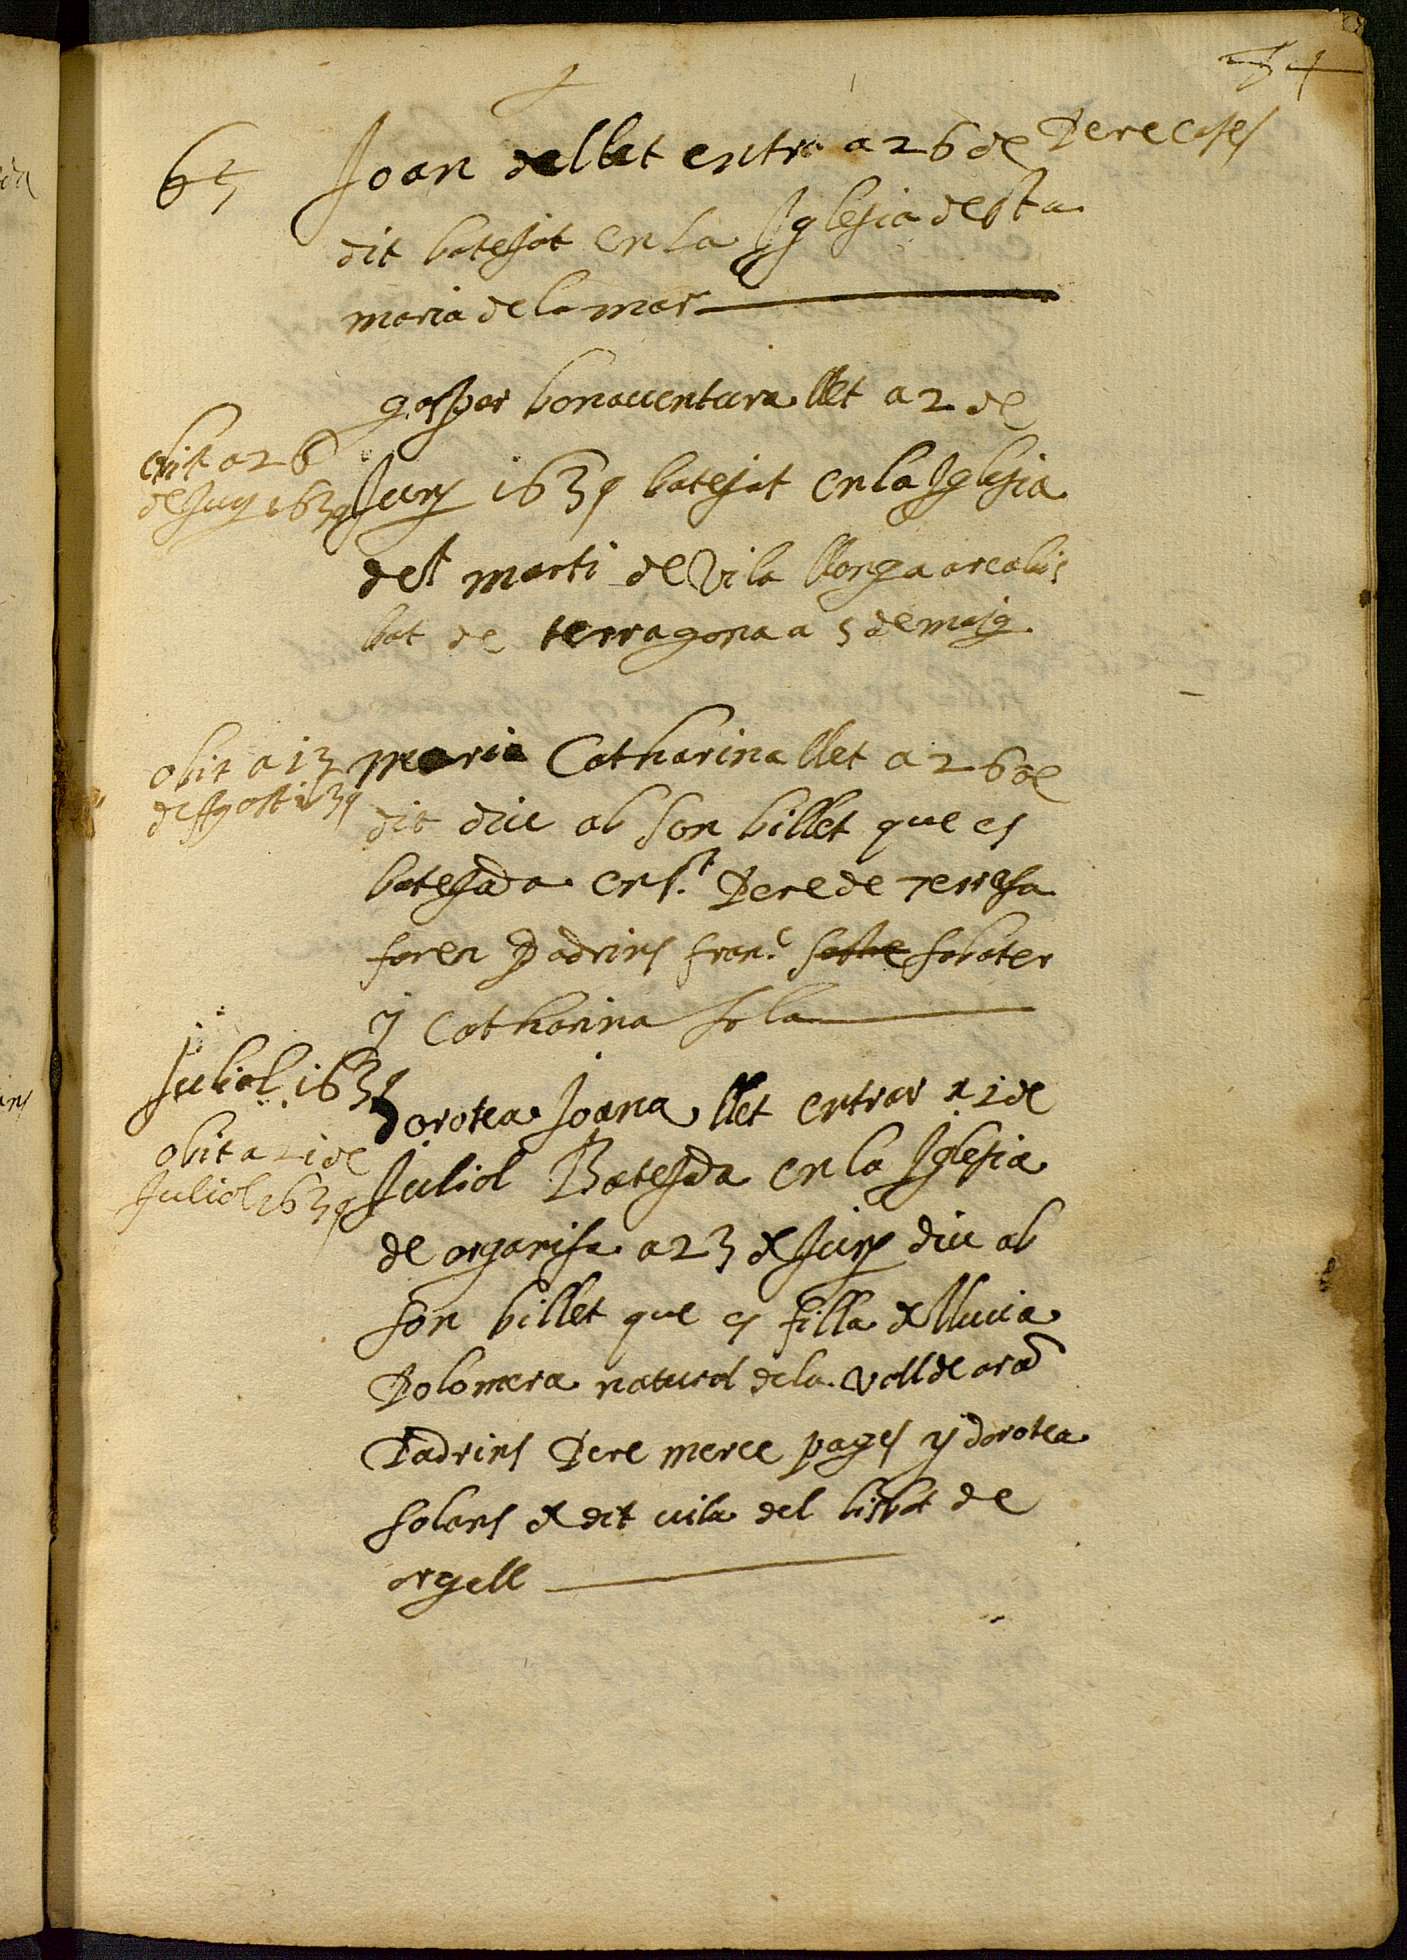 54
Joan de llet entra a 26 de Pere cases
dit batejat en la Iglesia de sta
maria de la mar
gaspar bonauentura llet a 2 de
obit a 26
de Juny 1639
Juny 1639 batejat en la Iglesia
de st marti de Vila llonga arcabis
bat de terragona a 5 de maig
obit a 13
de Agost 1639
maria Catharina llet a 26 de
dit diu ab son billet que es
batejada en st Pere de Terrasa
foren Padrins franc sastre sabater
y Catharina sola
Juliol 1639
Dorotea Joana llet entrar a 1 de
obit a 21 de
Juliol 1639
Juliol Batejada en la Iglesia
de organisa a 23 de Juny diu ab
son billet que es filla de lluvia
Polomera natural de la vall de ará
Padrins Pere merce pages y dorotea
solans de dit vila del bisbat de
orgell